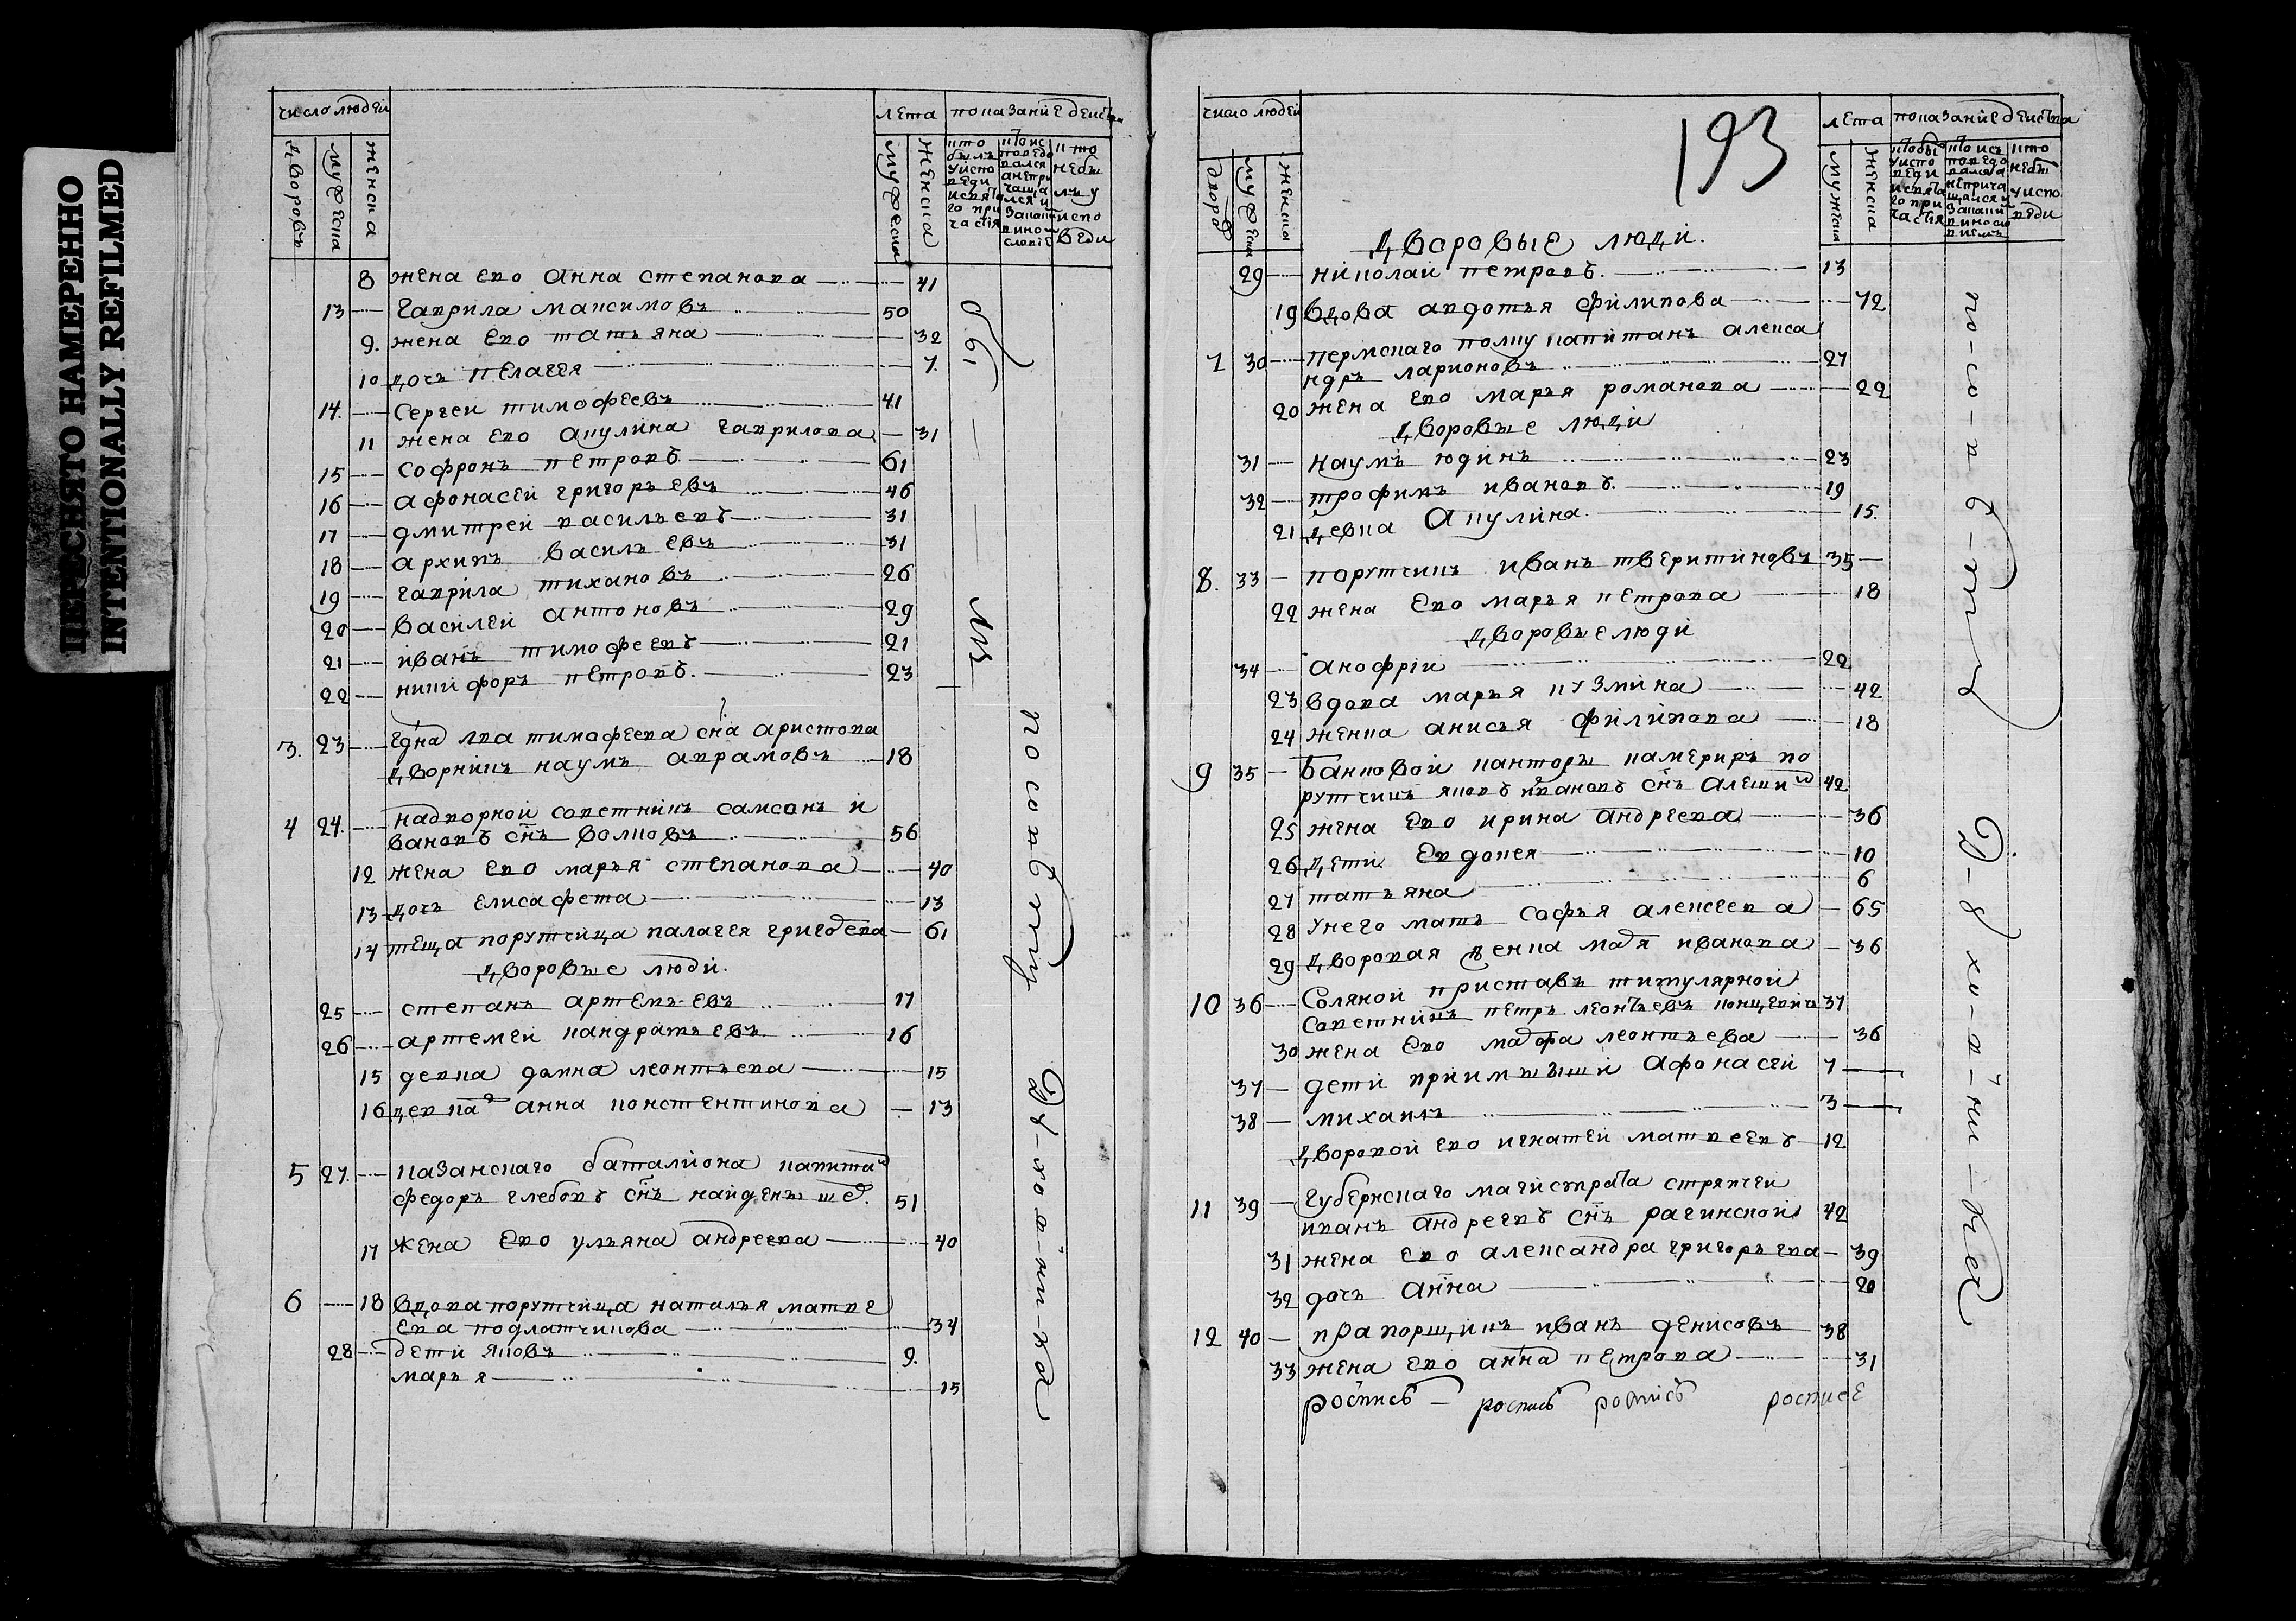 ПЕРЕСНЯТО НАМЕРЕННО
INTENTIONALLY REFILMED
число людей
лета
показание действа
дворовъ
мужеска
женска
мужеска
женска
кто былъ у исповеди и святаго причастия
8 жена ево анна степанова 41
13 гаврила максимовъ 50
9. жена ево татьяна 32
10 дочь пелагея 7.
14. сергеи тимофеевъ 41
11 жена ево акулина гаврилова 31
15 софронъ петровъ 61
16 афонасеи григорьевъ 46
17 дмитреи васильевъ 31
18 архипъ васильевъ 31
19 гаврила тиханов 26
20 василеи антоновъ 29
21 иванъ тимофеевъ 21
22 никифоръ петровъ. 23
3. 23 тимофеева сна аристова
дворникъ наумъ аврамовъ 18
4 24. надворной советникъ самсонъ и
вановъ снъ волковъ 56
12 жена ево марья степанова 40
13 дочь елисафета 13
14 теща порутчица палагея григорева 61
дворовые люди.
25 степанъ артемьевъ 17
26 артемеи кандратьевъ. 16
15 девка домна леонтьева 15
16 девка анна констентинова 13
5 27. казанскаго баталиона капитан
федоръ глебовъ снъ найденышев. 51
17 жена ево ульяна андреева 40
6 18 вдова порутчица наталья матве
ева подлатчикова 34
28 дети яковъ 9.
марья 15
обы
по совету
духовника
193
число людей
лета
показание действа
дворов
мужеска
женска
мужеска
женска
дворовые люди.
29 николаи петровъ. 13
19 вдова авдотья филипова 72
7 30 пермскаго полку капитанъ алекса
ндръ ларионовъ 27
20 жена ево марья романова 22
дворовые люди
31 наумъ юдинъ 23
32 трофимъ ивановъ. 19
21 девка акулина. 15.
8. 33 порутчикъ иванъ тверитиновъ 35
22 жена ево марья петрова 18
дворовые люди
34 анофрiи 22
23 вдова марья кузмина 42
24 женка анисья филипова 18
9 35 банковой канторы камериръ по
рутчикъ яковъ ивановъ снъ алешин 42
25 жена ево ирина андреева 36
26 дети евдокея 10
27 татьяна 6
28 у него мать софья алексеева 65
29 дворовая женка марья иванова 36
10 36 соляной приставъ титулярной
советникъ петръ леонтьевъ 37
30 жена ево марфа леонтьева 36
37 дети приимыши афонасеи 7
38 михаилъ 3
дворовой ево игнатеи матвеевъ 12
11 39 губернскаго магистрата стряпчеи
иванъ андреевъ снъ рагинской 42
31 жена ево александра григорьева 39
32 дочь анна 20
12 40 прапорщикъ иванъ денисовъ 38
33 жена ево анна петрова 31
роспись роспись роспись роспись
по-со-в-ѣ-ту
д-ухо-в-ни-ка